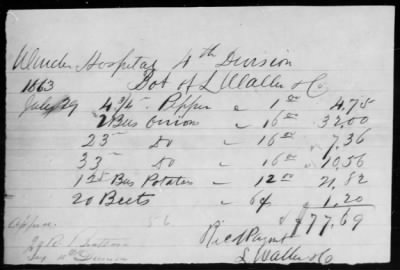 Winder Hospital 4th Division
1863 Bot of L Waller & Co
July 29 4 3/4 Pepper " 1 00 4.75
2 Bus Onion " 16 00 32.00
23 " Do " 16 00 7.36
33 " Do " 16 00 10.56
1 Bus Potatoes " 12 00 21.82
20 Beets " 6¢ 1.20
$77.69
Rec'd Paymt
L Waller & Co